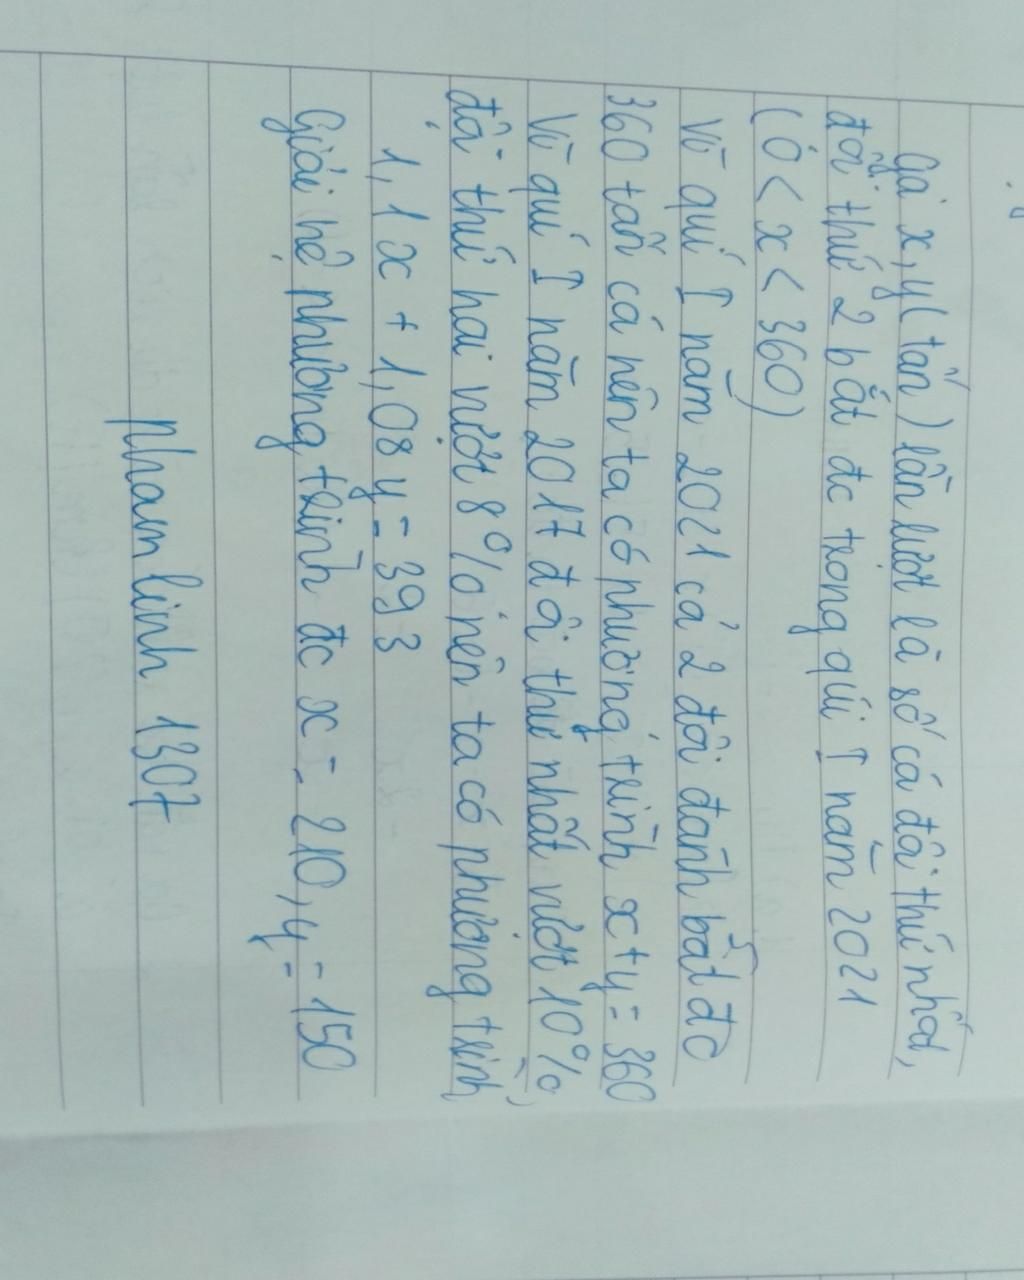 Gọi x, y (tấn) lần lượt là số cá đội thứ nhất,
đội thứ 2 bắt đc trong quí I năm 2021
(0 < x < 360)
Vì quí I năm 2021 cả 2 đội đánh bắt đc
360 tấn cá nên ta có phương trình x + y = 360
Vì quí I năm 2017 đội thứ nhất vượt 10%,
đội thứ hai vượt 8% nên ta có phương trình
1,1x + 1,08y = 393
Giải hệ phương trình đc x = 210, y = 150
Phamlinh 1307